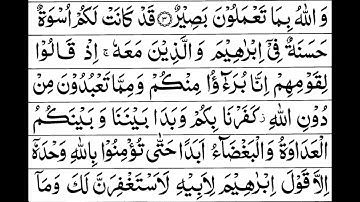 وَ اللّٰهُ بِمَا تَعْمَلُوْنَ بَصِيْرٌ ﴿۳﴾ قَدْ كَانَتْ لَكُمْ اُسْوَةٌ
حَسَنَةٌ فِيْۤ اِبْرٰهِيْمَ وَ الَّذِيْنَ مَعَهٗ ۚ اِذْ قَالُوْا
لِقَوْمِهِمْ اِنَّا بُرَءٰٓؤُا مِنْكُمْ وَ مِمَّا تَعْبُدُوْنَ مِنْ
دُوْنِ اللّٰهِ ؗ كَفَرْنَا بِكُمْ وَ بَدَا بَيْنَنَا وَ بَيْنَكُمُ
الْعَدَاوَةُ وَ الْبَغْضَآءُ اَبَدًا حَتّٰى تُؤْمِنُوْا بِاللّٰهِ وَحْدَهٗۤ
اِلَّا قَوْلَ اِبْرٰهِيْمَ لِاَبِيْهِ لَاَسْتَغْفِرَنَّ لَكَ وَ مَاۤ